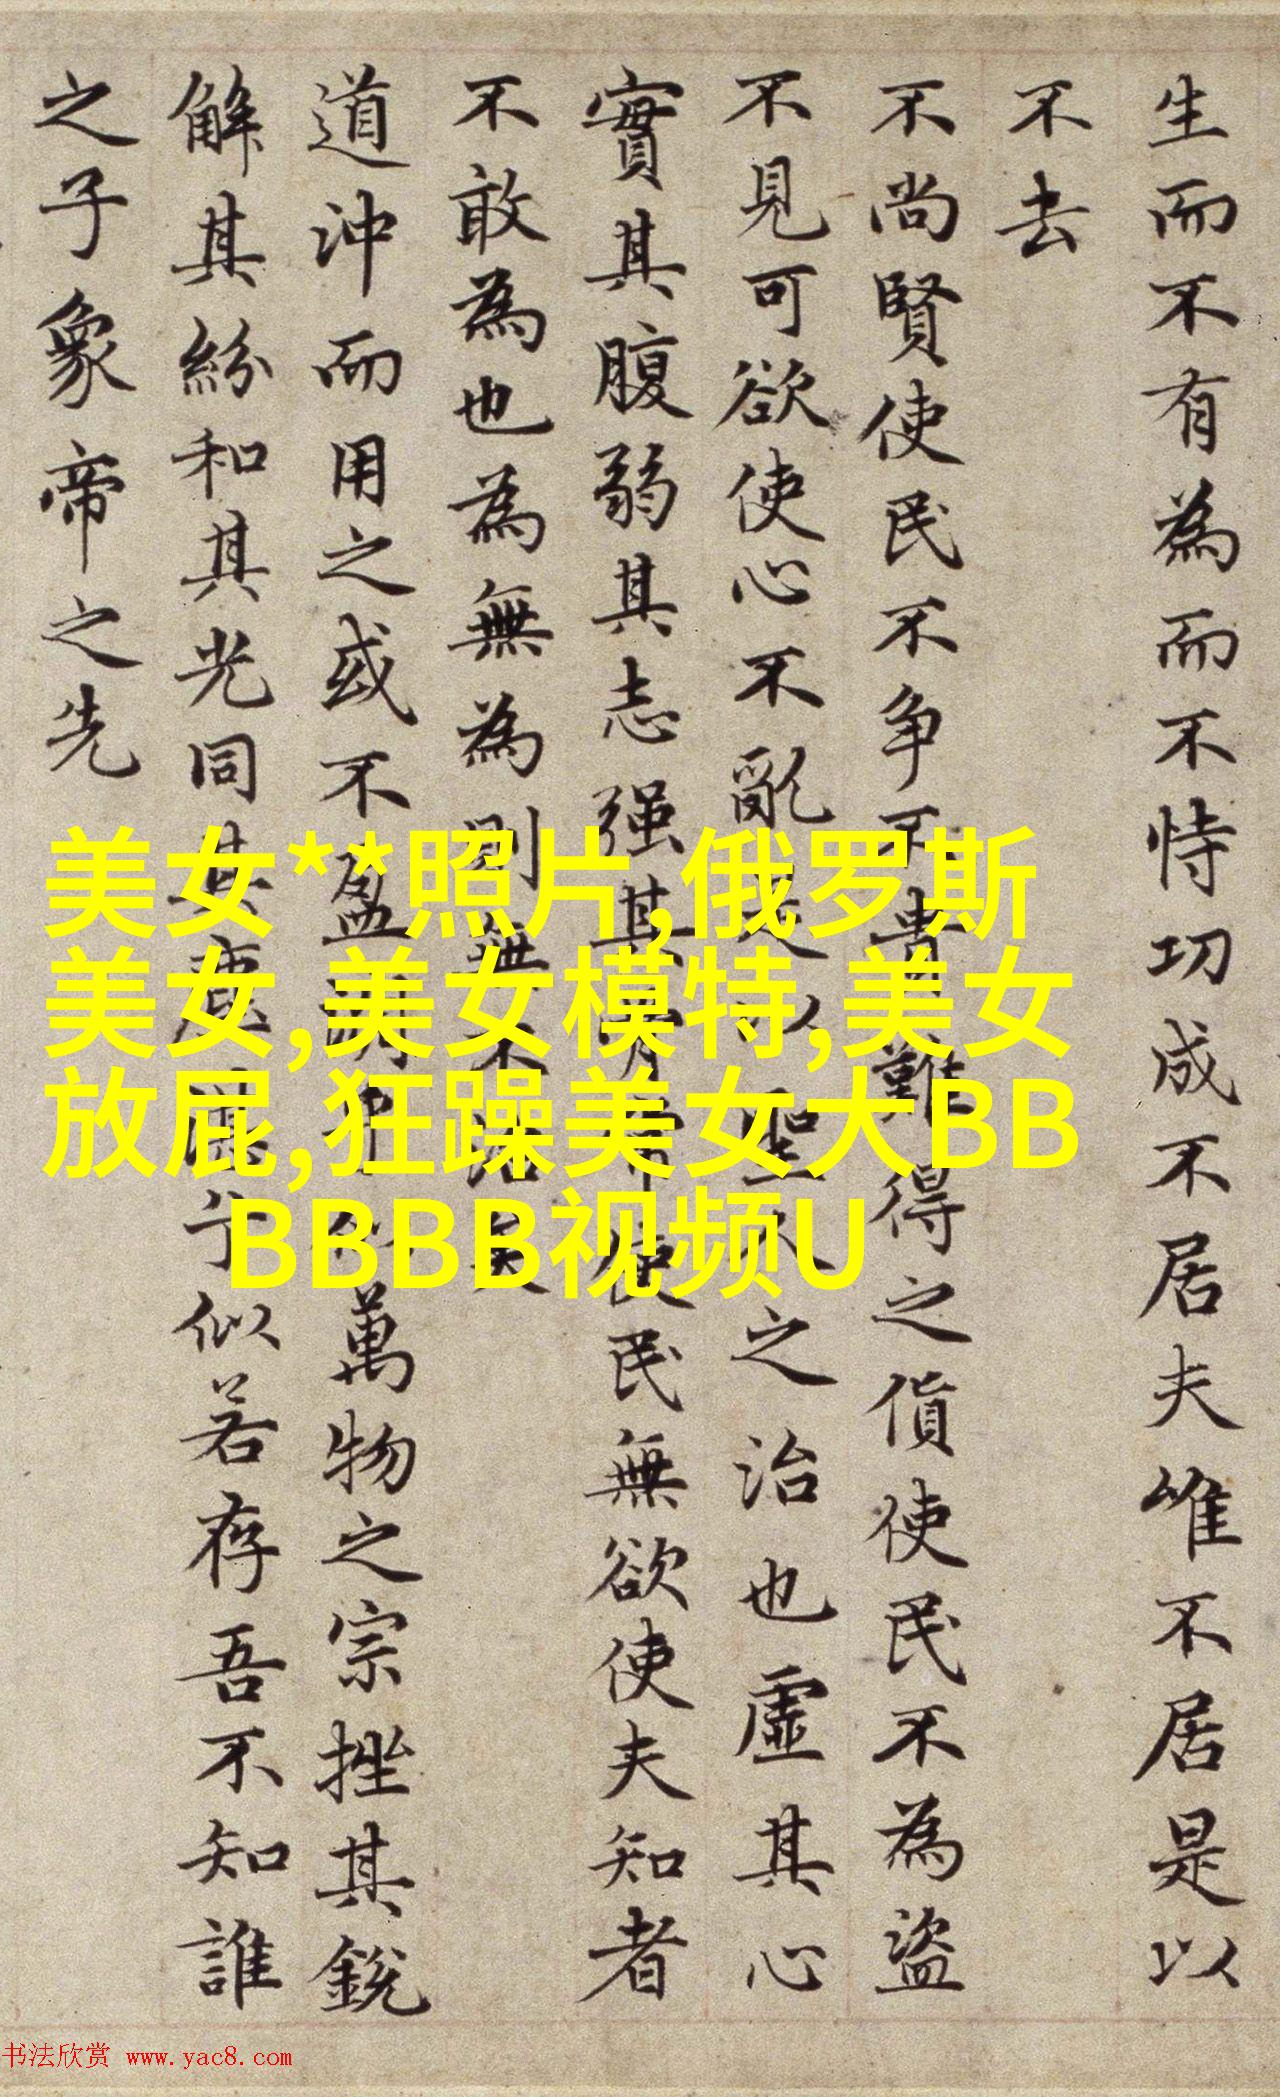 生而不有為而不恃功成不居夫唯不居是以
不去
不尚賢使民不争不貴難得之貨使民不為盜
不見可欲使心不亂是以聖人之治也虛其心
實其腹弱其志强其骨常使民無欲使夫知者
不敢為也為無為則無不治矣
道沖而用之或不盈淵乎似萬物之宗挫其銳
解其紛和其光同其塵湛兮似若存吾不知誰
之子象帝之先
美女**照片,俄罗斯
美女,美女模特,美女
放屁,狂躁美女大BB
BBBB视频U
书法欣赏 www.yac8.com